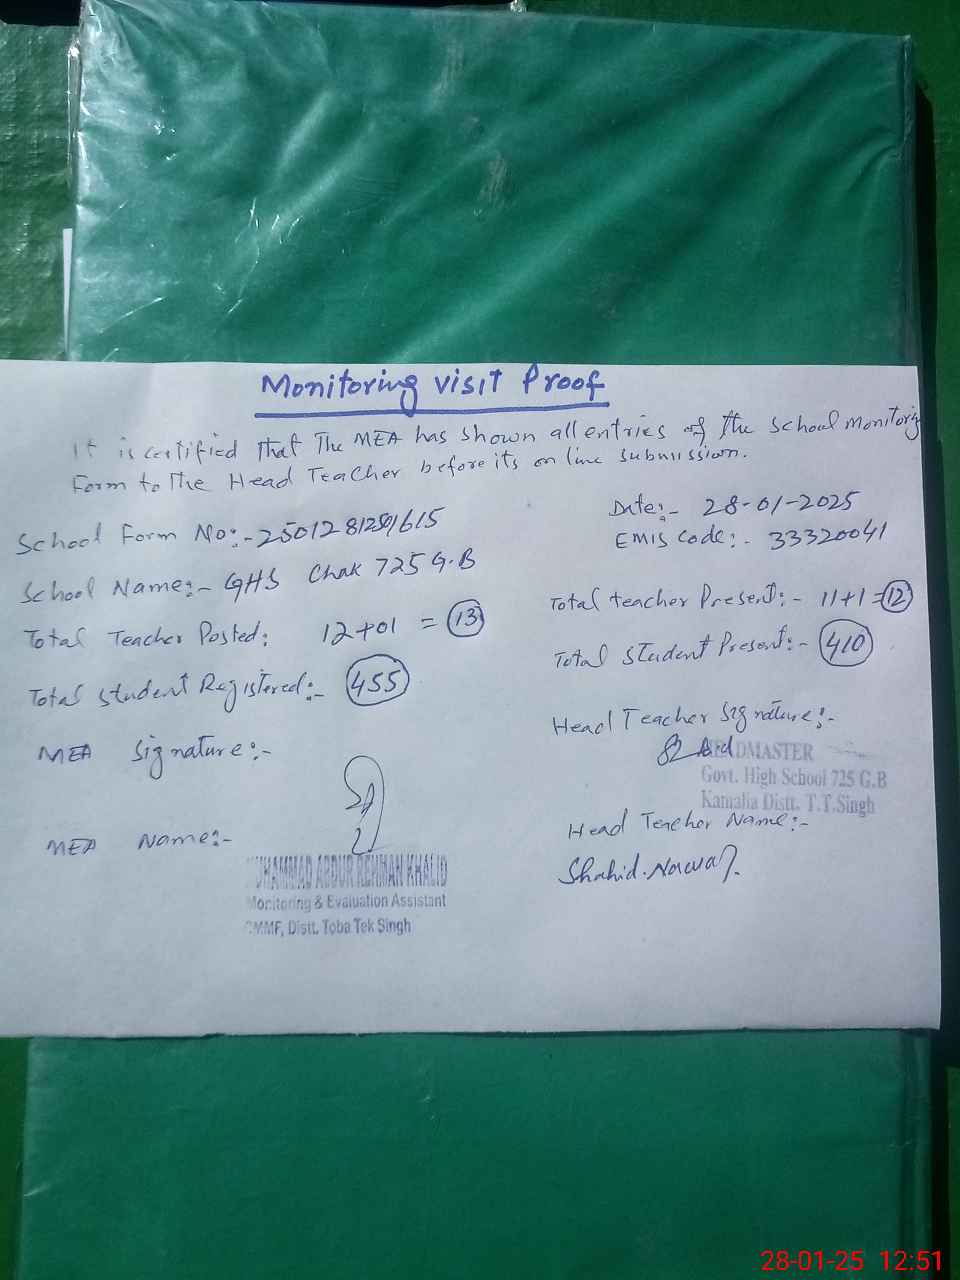 Monitoring visit Proof
It is certified that The MEA has shown all entries of the School Monitoring
Form to The Head Teacher before its on line submission.
Date:- 28-01-2025
School Form No:-
EMIS Code:- 33320041
School Name:- GHS Chak 725 G.B
Total teacher Present:- 11+1=12
Total Teacher Posted: 12+01 = 13
Total Student Present:- 410
Total Student Registered:- 455
Head Teacher Signature:-
MEA Signature:-
HEADMASTER
Govt. High School 725 G.B
Kamalia Distt. T.T.Singh
Head Teacher Name:-
MEA Name:-
Shahid Nawaz
MUHAMMAD ABDUR REHMAN KHALID
Monitoring & Evaluation Assistant
CMMF, Distt. Toba Tek Singh
28-01-25 12:51